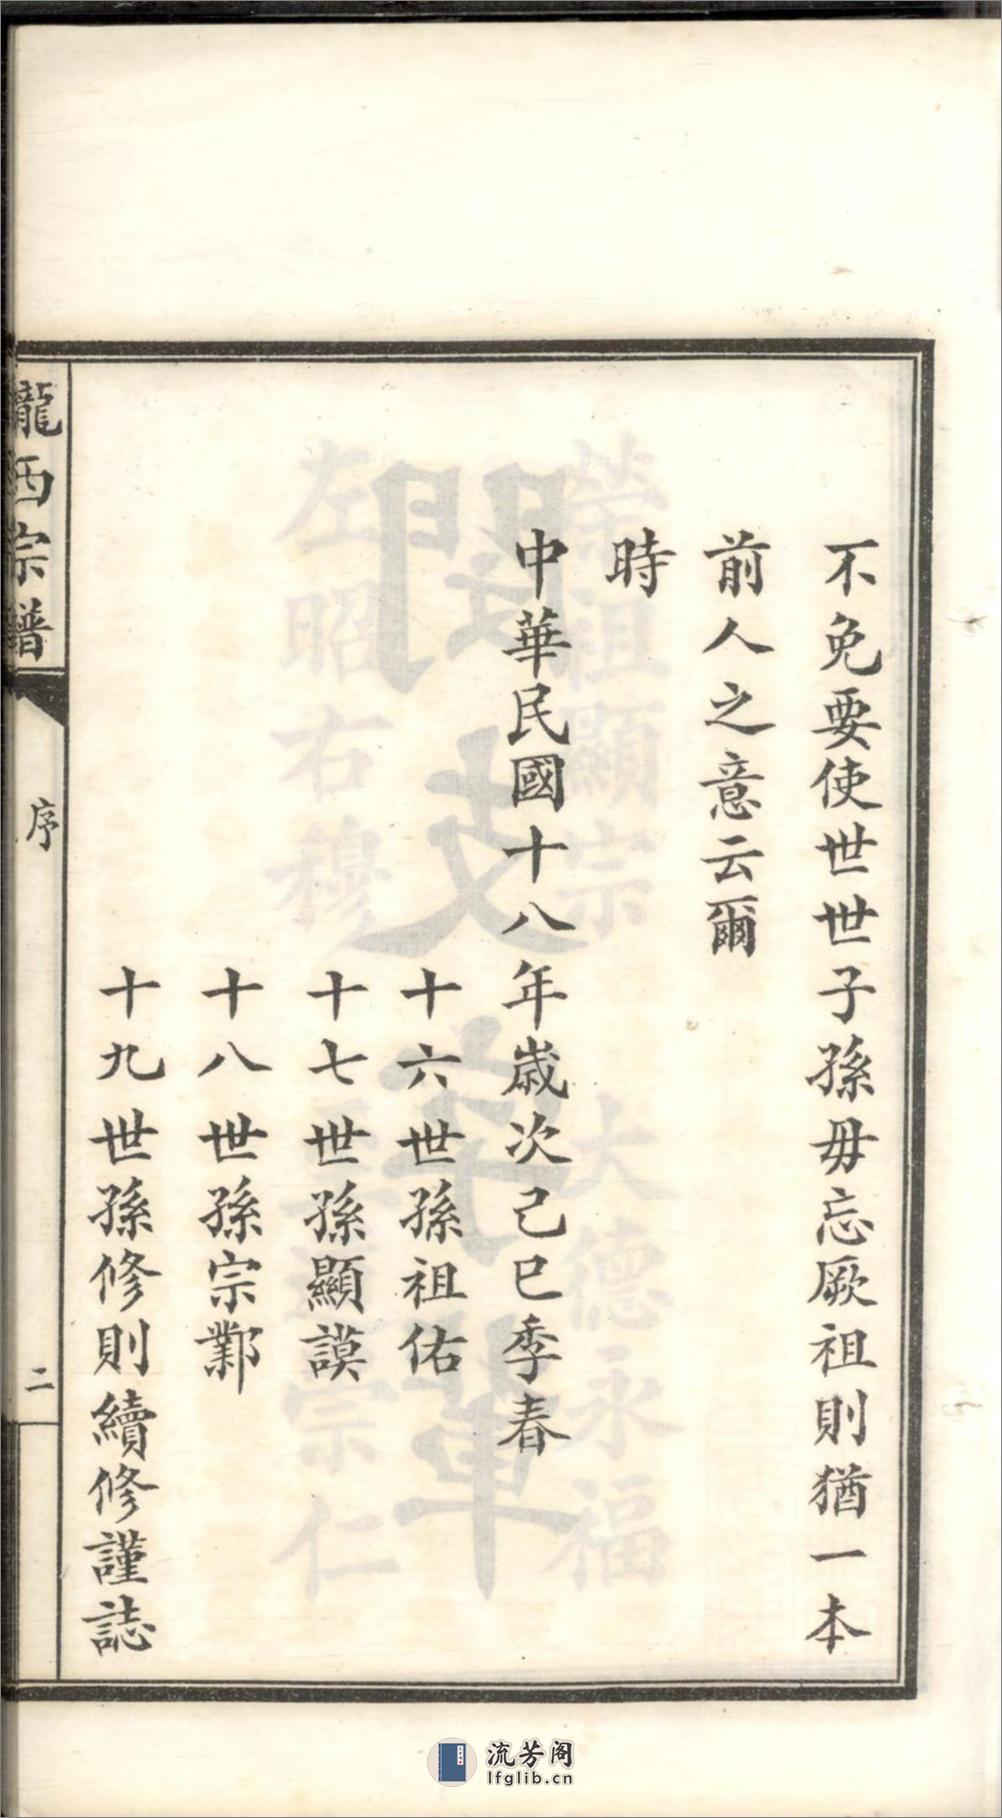 不免要使世世子孫毋忘厥祖則猶一本
前人之意云爾
時
中華民國十八年歲次己巳季春
十六世孫祖佑
十七世孫顯謨
十八世孫宗鄴
十九世孫修則續修謹誌
隴西宗譜
序
二
流芳阁
lfglib.cn